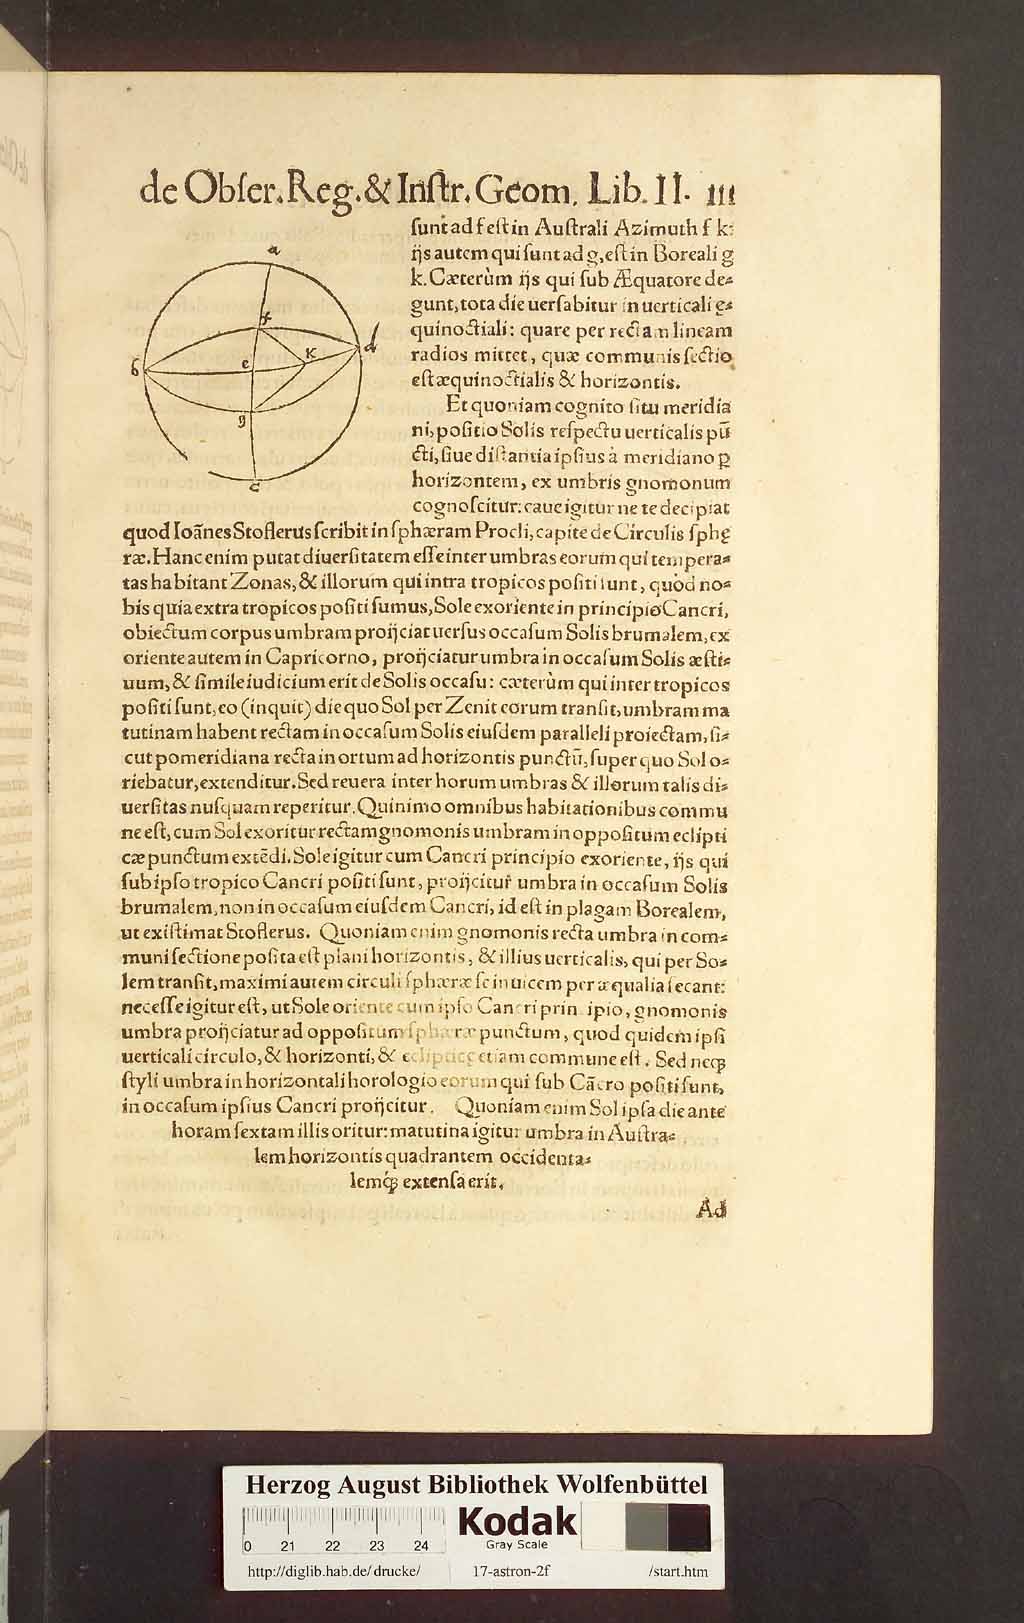 de Obſer. Reg. & Inſtr. Geom. Lib. II. 111
ſunt ad f eſt in Auſtrali Azimuth f k:
ijs autem qui ſunt ad g, eſt in Boreali g
k. Cæterùm ijs qui ſub Æquatore de⸗
gunt, tota die uerſabitur in uerticali ę⸗
quinoctiali: quare per rectam lineam
radios mittet, quæ communis ſectio
eſt æquinoctialis & horizontis.
Et quoniam cognito ſitu meridia
ni, poſitio Solis reſpectu uerticalis pū
cti, ſiue diſtantia ipſius à meridiano ꝑ
horizontem, ex umbris gnomonum
cognoſcitur: caue igitur ne te decipiat
a
f
d
b
e
k
g
c
quod Ioānes Stoflerus ſcribit in ſphæram Procli, capite de Circulis ſphę
ræ. Hanc enim putat diuerſitatem eſſe inter umbras eorum qui tempera⸗
tas habitant Zonas, & illorum qui intra tropicos poſiti ſunt, quòd no⸗
bis quia extra tropicos poſiti ſumus, Sole exoriente in principio Cancri,
obiectum corpus umbram proijciat uerſus occaſum Solis brumalem, ex
oriente autem in Capricorno, proijciatur umbra in occaſum Solis æſti⸗
uum, & ſimile iudicium erit de Solis occaſu: cæterùm qui inter tropicos
poſiti ſunt, eo (inquit) die quo Sol per Zenit eorum tranſit, umbram ma
tutinam habent rectam in occaſum Solis eiuſdem paralleli proiectam, ſi⸗
cut pomeridiana recta in ortum ad horizontis punctū, ſuper quo Sol o⸗
riebatur, extenditur. Sed reuera inter horum umbras & illorum talis di⸗
uerſitas nuſquam reperitur. Quinimo omnibus habitationibus commu
ne eſt, cum Sol exoritur rectam gnomonis umbram in oppoſitum eclipti
cæ punctum extēdi. Sole igitur cum Cancri principio exoriente, ijs qui
ſub ipſo tropico Cancri poſiti ſunt, proijcitur umbra in occaſum Solis
brumalem, non in occaſum eiuſdem Cancri, id eſt in plagam Borealem,
ut exiſtimat Stoflerus. Quoniam enim gnomonis recta umbra in com⸗
muni ſectione poſita eſt plani horizontis, & illius uerticalis, qui per So⸗
lem tranſit, maximi autem circuli ſphæræ ſe inuicem per æqualia ſecant:
neceſſe igitur eſt, ut Sole oriente cum ipſo Cancri prin ipio, gnomonis
umbra proijciatur ad oppoſitum ſphæræ punctum, quod quidem ipſi
uerticali circulo, & horizonti, & eclipticę etiam commune eſt. Sed neqꝫ
ſtyli umbra in horizontali horologio eorum qui ſub Cācro poſiti ſunt,
in occaſum ipſius Cancri proijcitur. Quoniam enim Sol ipſa die ante
horam ſextam illis oritur: matutina igitur umbra in Auſtra⸗
lem horizontis quadrantem occidenta⸗
lemqꝫ extenſa erit.
Ad
Herzog August Bibliothek Wolfenbüttel
0 21 22 23 24
Kodak
Gray Scale
http://diglib.hab.de/drucke/ 17-astron-2f /start.htm